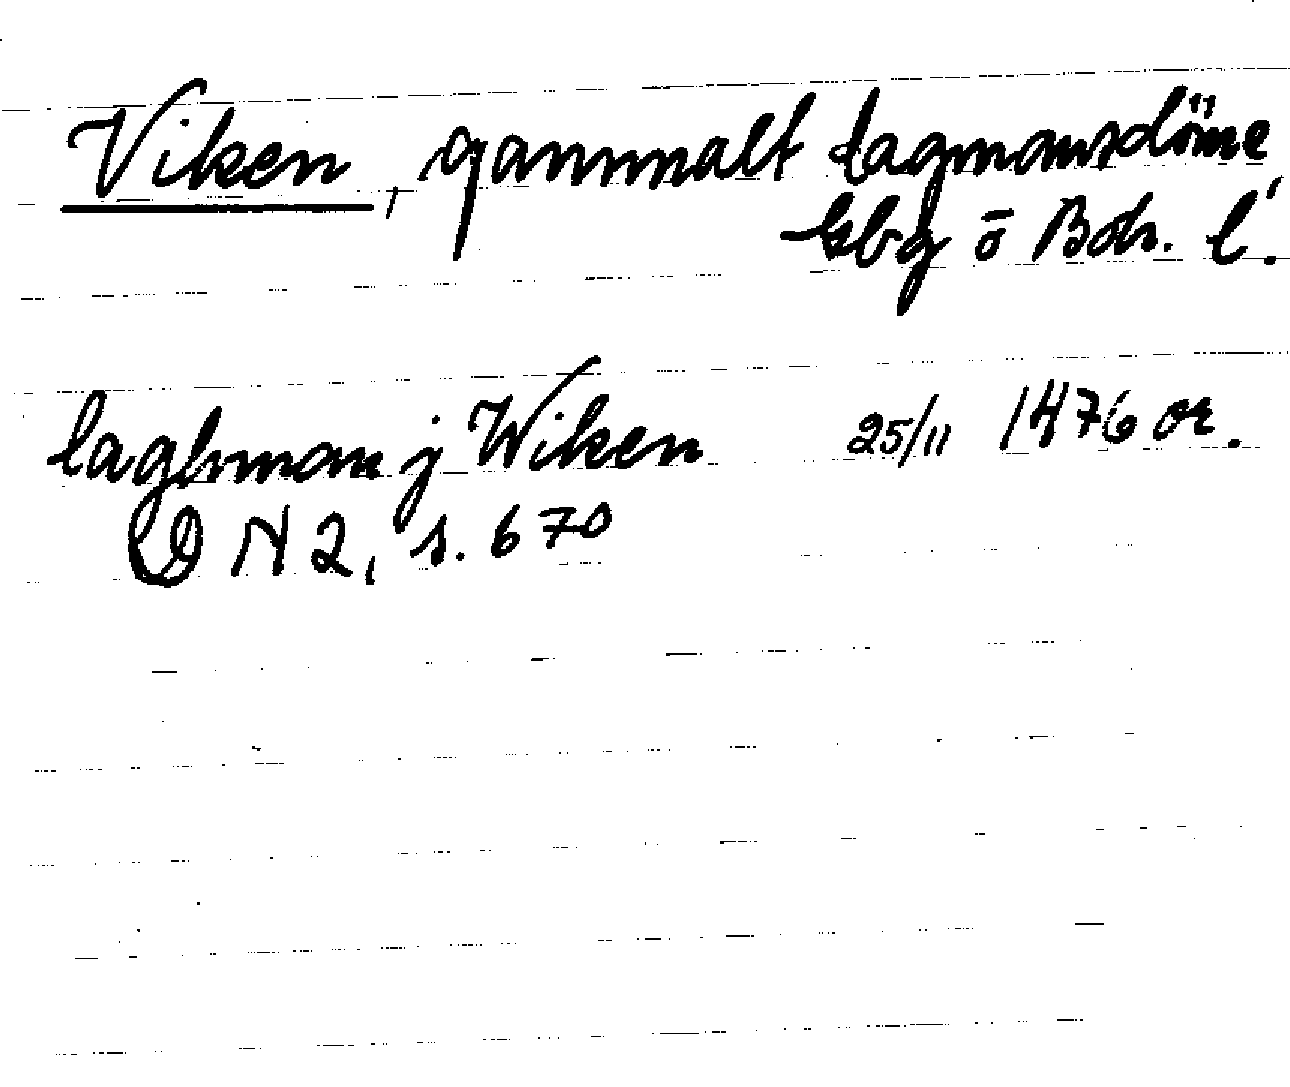 Viken, gammalt lagmansdöme
Gbg ō Boh. l.
laghman j Wiken 25/11 1476 or.
DN 2, s. 670